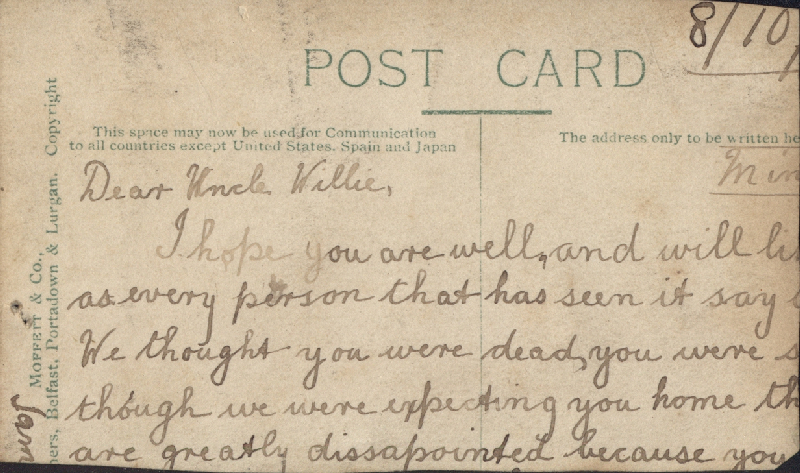 8/10/
POST CARD
This space may now be used for Communication
to all countries except United States, Spain and Japan
The address only to be written he
MOFFETT & Co.,
ners, Belfast, Portadown & Lurgan. Copyright
Min
Dear Uncle Willie,
I hope you are well, and will li
as every person that has seen it say
We thought you were dead, you were s
though we were expecting you home th
are greatly dissapointed because you
Jam